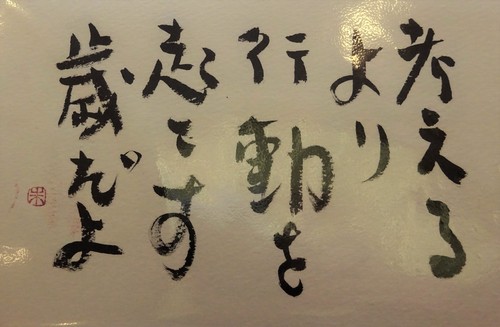 考える
より
行動を
起こす
歳だよ